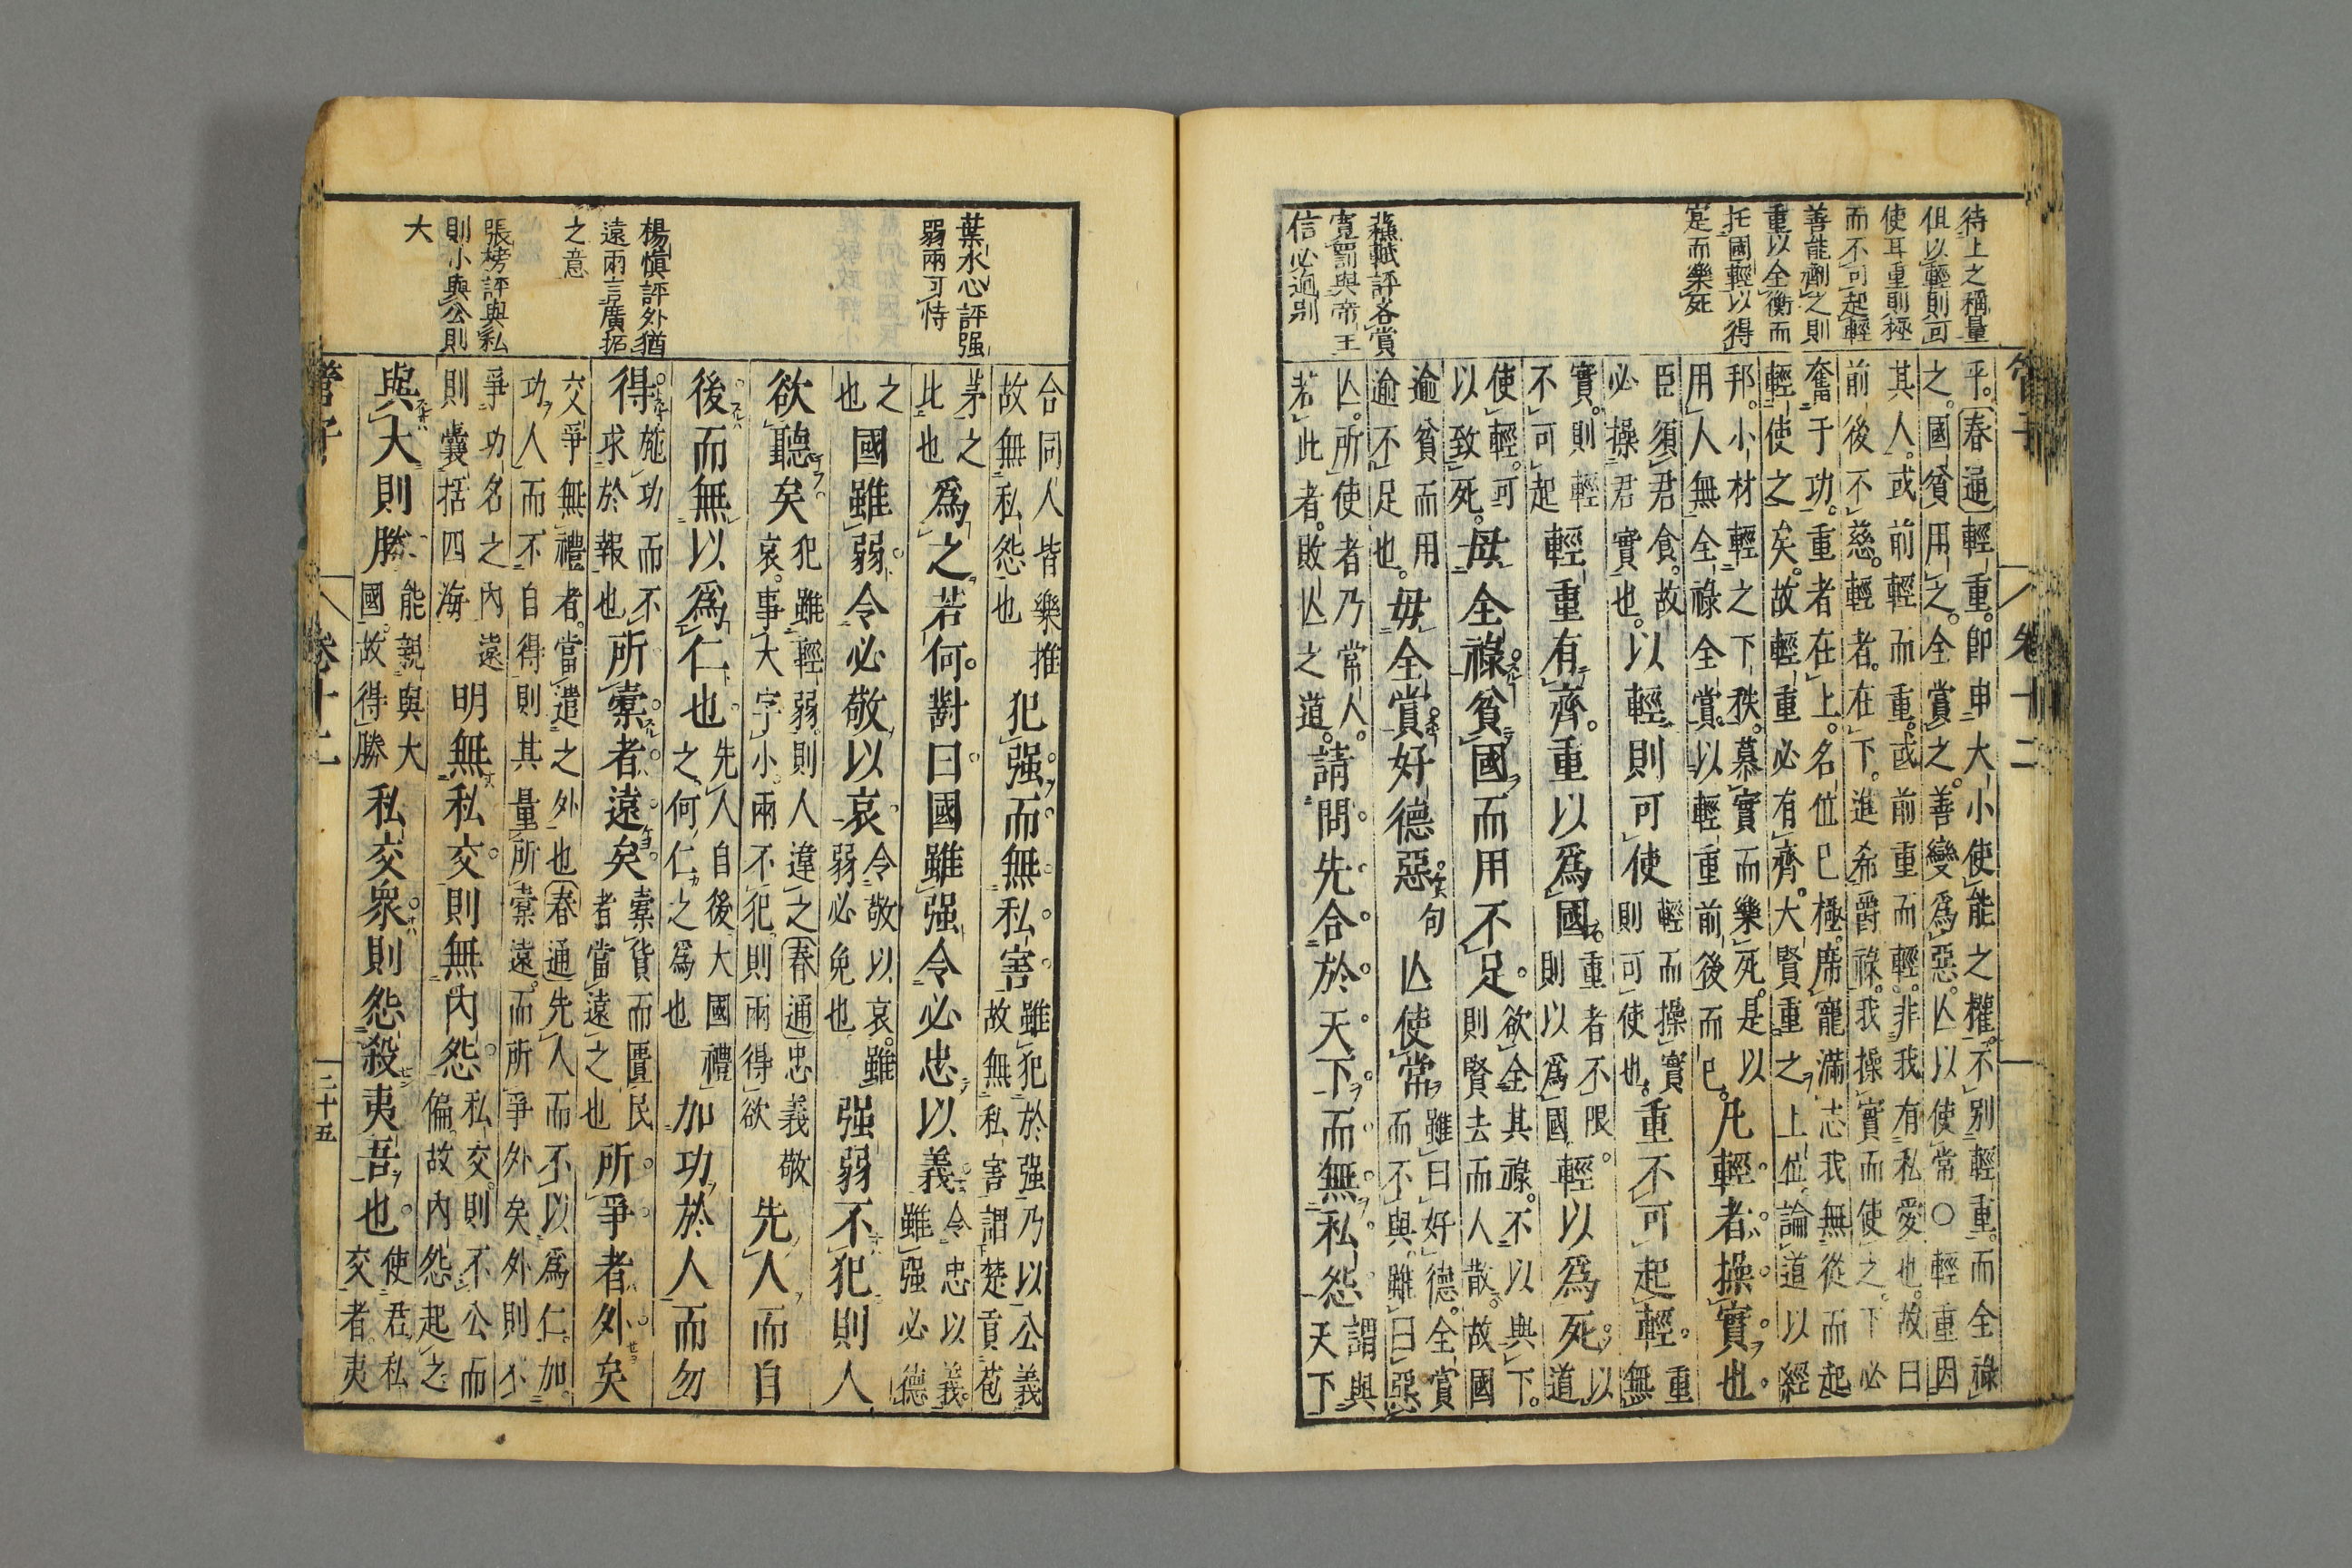 待上之稱量
但以輕則可
使耳重則極
而不可起輕
善能劑之則
重以全衡而
托國輕以得
寔而樂死
蘓軾評各賞
寬罰與帝王
信必逈别
管子　卷十二
乎。春通輕重。即申大小使能之權。不别輕重。而全祿
之。國貧用之。全賞之。善變為惡。亾以使常○輕重因
其人。或前輕而重。或前重而輕。非我有私愛也。故曰
前後不慈。輕者。在下。進希爵祿。我操實而使之。下必
奮于功。重者在上。名位已極。席寵滿志我無從而起
輕使之矣。故輕重必有齊。大賢重之上位論道以經
邦。小材輕之下秩。慕實而樂死。是以
用人無全祿全賞。以輕重前後而已。
凡輕者操實也
臣須君食。故
必操君實也。
以輕則可使
輕而操實
則可使也。
重不可起輕。
重
無
實。則輕
不可起
輕重有齊。重以為國
重者不限。
則以為國
輕以為死。
以
道
使輕。可
以致死。
毋全祿貧國而用不足。
欲全其祿。不以與下。
則賢去而人散。故國
逾貧而用
逾不足也。
毋全賞好德惡
句
亾使常
雖曰好德。全賞
而不與。雖曰惡
亾。所使者乃常人。
若此者。敗亾之道。
請問先合於天下而無私怨
謂與
天下
葉水心評强
弱兩可恃
楊慎評外猶
遠兩言廣拓
之意
張榜評與私
則小與公則
大
合同人皆樂推
故無私怨也
犯强而無私害
雖犯於强乃以公義
故無私害謂楚貢苞
茅之
此也
為之若何。對曰國雖强令必忠以義
令忠以義。
雖强必德
之
也
國雖弱令必敬以哀
令敬以哀。雖
弱必免也
强弱不犯則人
欲聽矣
犯雖輕弱。則人違之春通忠義敬
哀。事大字小。兩不犯。則兩得欲
先人而自
後而無以為仁也
先人自後大國禮
之何仁之為也
加功於人而勿
得
施功而不
求於報也
所橐者遠矣
橐貨而匱民
者當遠之也
所爭者外矣
交爭無禮者。當遣之外也春通先人而不以為仁。加
功人而不自得則其量所橐遠。而所爭外矣外則不
爭功名之內遠
則囊括四海
明無私交則無內怨
私交則不公而
偏故內怨起之
與大則勝
能親與大
國。故得勝
私交衆則怨殺夷吾也
使君私
交者夷
管子　卷十二　二十五